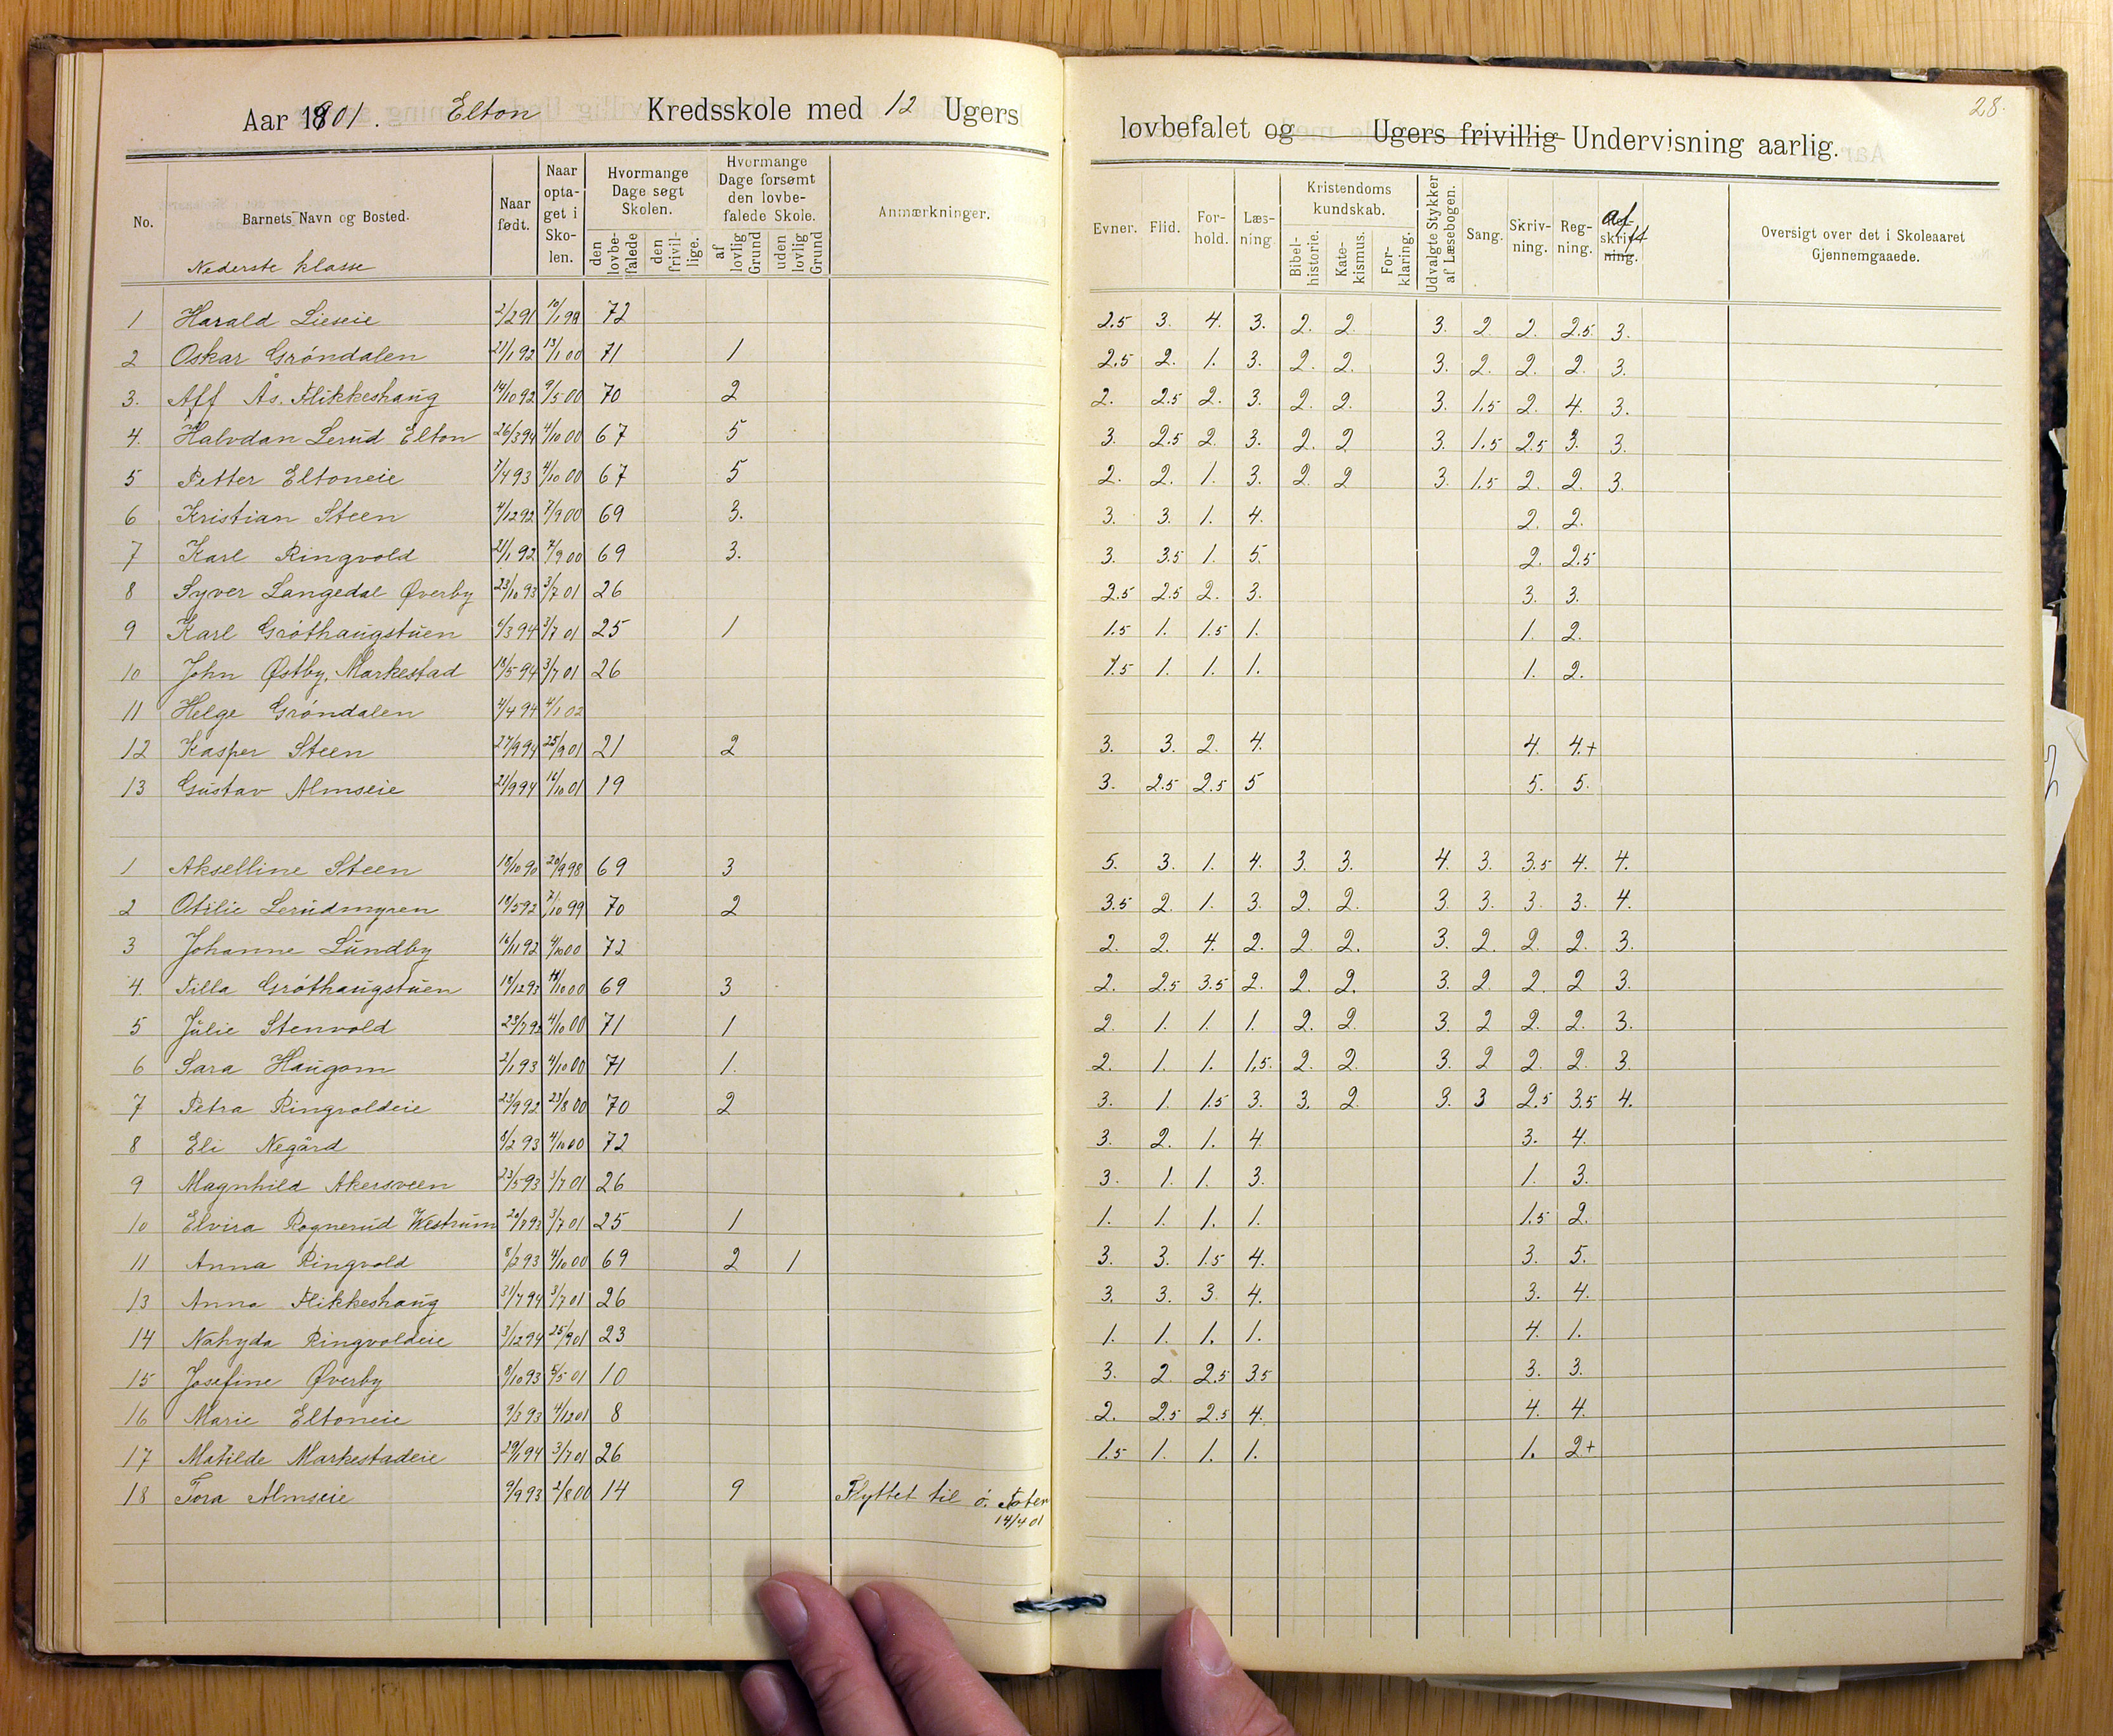 Aar 1901. Elton Kredsskole med 12 Ugers lovbefalet og Ugers frivillig Undervisning aarlig. 28.
No. Barnets Navn og Bosted. Naar født. Naar optaget i Skolen. Hvormange Dage søgt Skolen. den lovbefalede den frivillige. Hvormange Dage forsømt den lovbefalede Skole. af lovlig Grund uden lovlig Grund Anmærkninger. Evner. Flid. Forhold. Læsning. Kristendomskundskab. Bibelhistorie. Katekismus. Forklaring. Udvalgte Stykker af Læsebogen. Sang. Skrivning. Regning. Afskrift Oversigt over det i Skoleaaret Gjennemgaaede.
Nederste klasse
1 Harald Lieseie 2/2 91 10/1 98 72 2.5 3. 4. 3. 2. 2. 3. 2 2. 2.5 3.
2 Oskar Gróndalen 21/1 92 13/1 00 71 1 2.5 2. 1. 3. 2. 2. 3. 2. 2. 2. 3.
3. Aff Ås. Flikkeshaug 14/10 92 9/5 00 70 2 2. 2.5 2. 3. 2. 2. 3. 1.5 2. 4. 3.
4. Halvdan Lerud Elton 26/3 94 4/10 00 67 5 3. 2.5 2. 3. 2. 2 3. 1.5 2.5 3. 3.
5 Petter Eltoneie 7/4 93 4/10 00 67 5 2. 2. 1. 3. 2. 2 3. 1.5 2. 2. 3.
6 Kristian Steen 4/12 92 7/9 00 69 3. 3. 3. 1. 4. 2. 2.
7 Karl Ringvold 21/1 92 7/9 00 69 3. 3. 3.5 1. 5. 2. 2.5
8 Syver Langedal Øverby 23/10 93 3/7 01 26 2.5 2.5 2. 3. 3. 3.
9 Karl Gróthaugstuen 4/3 94 3/7 01 25 1 1.5 1. 1.5 1. 1. 2.
10 John Østby, Markestad 18/5 94 3/7 01 26 1.5 1. 1. 1. 1. 2.
11 Helge Gróndalen 4/4 94 4/1 02
12 Kasper Steen 27/9 94 25/9 01 21 2 3. 3. 2. 4. 4. 4.+
13 Gustav Almseie 21/9 94 16/10 01 19 3. 2.5 2.5 5 5. 5.
1 Akselline Steen 18/10 90 20/9 98 69 3 5. 3. 1. 4. 3. 3. 4. 3. 3.5 4. 4.
2 Otilie Lerudmyren 18/5 92 7/10 99 70 2 3.5 2. 1. 3. 2. 2. 3. 3. 3. 3. 4.
3 Johanne Lundby 16/11 92 4/10 00 72 2. 2. 4. 2. 2. 2. 3. 2. 2. 2. 3.
4. Tilla Gróthaugstuen 18/12 93 4/10 00 69 3 2. 2.5 3.5 2. 2. 2. 3. 2. 2. 2 3.
5 Julie Stenvold 23/7 92 4/10 00 71 1 2. 1. 1. 1. 2. 2. 3. 2 2. 2. 3.
6 Sara Haugom 2/1 93 4/10 00 71 1. 2. 1. 1. 1,5. 2. 2. 3. 2 2. 2. 3.
7 Petra Ringvoldeie 23/9 92 23/8 00 70 2 3. 1. 1.5 3. 3. 2. 3. 3 2.5 3.5 4.
8 Eli Negård 8/2 93 4/10 00 72 3. 2. 1. 4. 3. 4.
9 Magnhild Akersveen 23/5 93 3/7 01 26 3. 1. 1. 3. 1. 3.
10 Elvira Rognerud Westrum 20/7 93 3/7 01 25 1 1. 1. 1. 1. 1.5 2.
11 Anna Ringvold 8/2 93 4/10 00 69 2 1 3. 3. 1.5 4. 3. 5.
13 Anna Flikkeshaug 31/7 94 3/7 01 26 3. 3. 3. 4. 3. 4.
14 Nahyda Ringvoldeie 3/12 94 25/9 01 23 1. 1. 1. 1. 4. 1.
15 Josefine Øverby 8/10 93 5/5 01 10 3. 2 2.5 3.5 3. 3.
16 Marie Eltoneie 9/3 93 4/12 01 8 2. 2.5 2.5 4. 4. 4.
17 Matilde Markestadeie 29/1 94 3/7 01 26 1.5 1. 1. 1. 1. 2+
18 Tora Almseie 9/9 93 2/8 00 14 9 Flyttet til ó. Toten
14/4 01